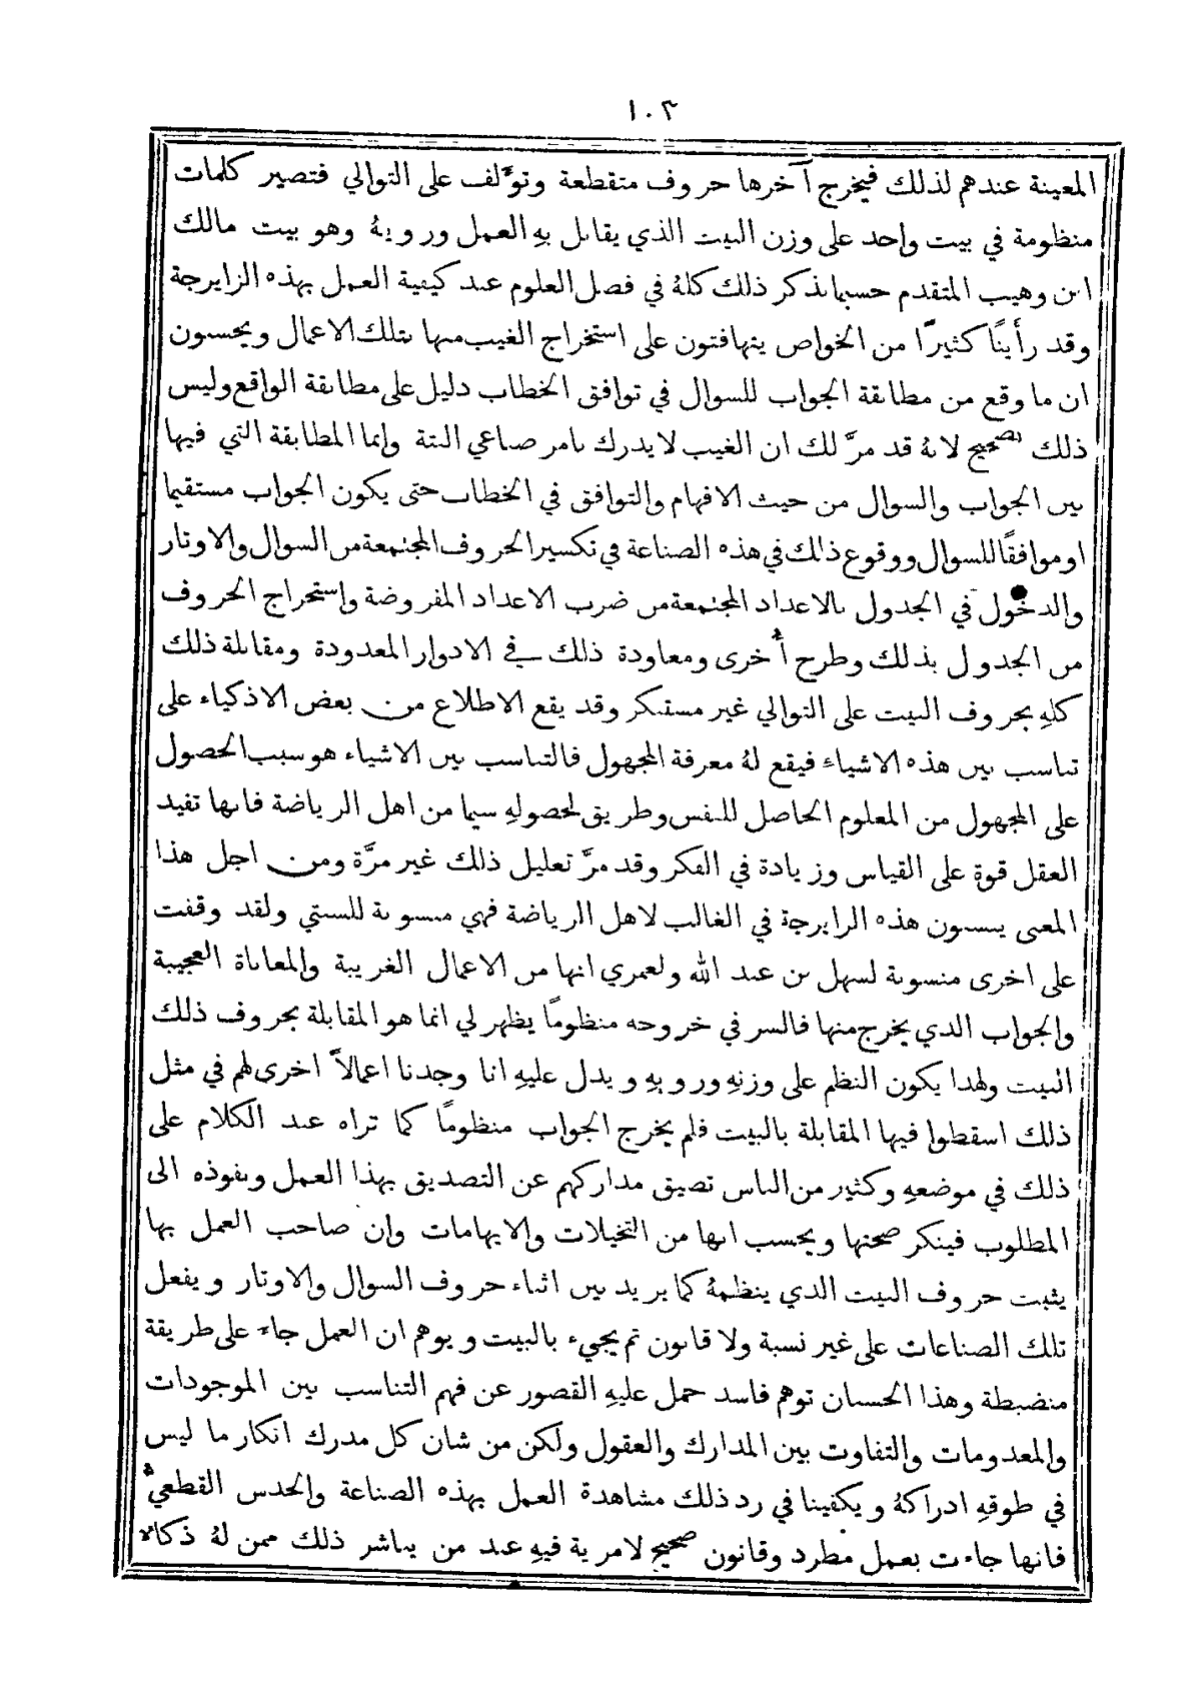 ١٠٣
المعينة عندهم لذلك فيخرج آخرها حروف متقطعة وتوَّلف على التوالي فتصير كلمات
منظومة في بيت واحد على وزن البيت الذي يقابل بهِ العمل ورويهُ وهو بيت مالك
ابن وهيب المتقدم حسبما نذكر ذلك كلهُ في فصل العلوم عند كيفية العمل بهذه الزايرجة
وقد رأَينًا كثيرًا من الخواص يتهافتون على استخراج الغيب منها بتلك الاعمال ويحسبون
ان ما وقع من مطابقة الجواب للسوال في توافق الخطاب دليل على مطابقة الواقع وليس
ذلك بصحيح لانهُ قد مرَّ لك ان الغيب لا يدرك بامر صناعي البتة وانما المطابقة التي فيها
بين الجواب والسوال من حيث الافهام والتوافق في الخطاب حتى يكون الجواب مستقيما
او موافقًا للسوال ووقوع ذلك في هذه الصناعة في تكسير الحروف المجتمعة من السوال والاوتار
والدخول في الجدول بالاعداد المجتمعة من ضرب الاعداد المفروضة واستخراج الحروف
من الجدول بذلك وطرح أُخرى ومعاودة ذلك في الادوار المعدودة ومقابلة ذلك
كلهِ بحروف البيت على التوالي غير مستنكر وقد يقع الاطلاع من بعض الاذكياء على
تناسب بين هذه الاشياء فيقع لهُ معرفة المجهول فالتناسب بين الاشياء هو سبب الحصول
على المجهول من المعلوم الحاصل للنفس وطريق لحصولهِ سيما من اهل الرياضة فانها تفيد
العقل قوة على القياس وزيادة في الفكر وقد مرَّ تعليل ذلك غير مرَّة ومن اجل هذا
المعنى ينسبون هذه الزايرجة في الغالب لاهل الرياضة فهي منسوبة للسبتي ولقد وقفت
على اخرى منسوبة لسهل بن عبد الله ولعمري انها من الاعمال الغريبة والمعاناة العجيبة
والجواب الذي يخرج منها فالسر في خروجه منظومًا يظهر لي انما هو المقابلة بحروف ذلك
البيت ولهذا يكون النظم على وزنهِ ورويهِ ويدل عليهِ انا وجدنا اعمالاً اخرى لهم في مثل
ذلك اسقطوا فيها المقابلة بالبيت فلم يخرج الجواب منظومًا كما تراه عند الكلام على
ذلك في موضعهِ وكثير من الناس تضيق مداركهم عن التصديق بهذا العمل ونفوذه الى
المطلوب فينكر صحتها ويحسب انها من التخيلات والايهامات وان صاحب العمل بها
يثبت حروف البيت الذي ينظمهُ كما يريد بين اثناء حروف السوال والاوتار ويفعل
تلك الصناعات على غير نسبة ولا قانون ثم يجيء بالبيت ويوهم ان العمل جاء على طريقة
منضبطة وهذا الحسبان توهم فاسد حمل عليهِ القصور عن فهم التناسب بين الموجودات
والمعدومات والتفاوت بين المدارك والعقول ولكن من شان كل مدرك انكار ما ليس
في طوقهِ ادراكهُ ويكفينا في رد ذلك مشاهدة العمل بهذه الصناعة والحدس القطعيُّ
فانها جاءت بعمل مطرد وقانون صحيح لا مرية فيهِ عند من يباشر ذلك ممن لهُ ذكاء